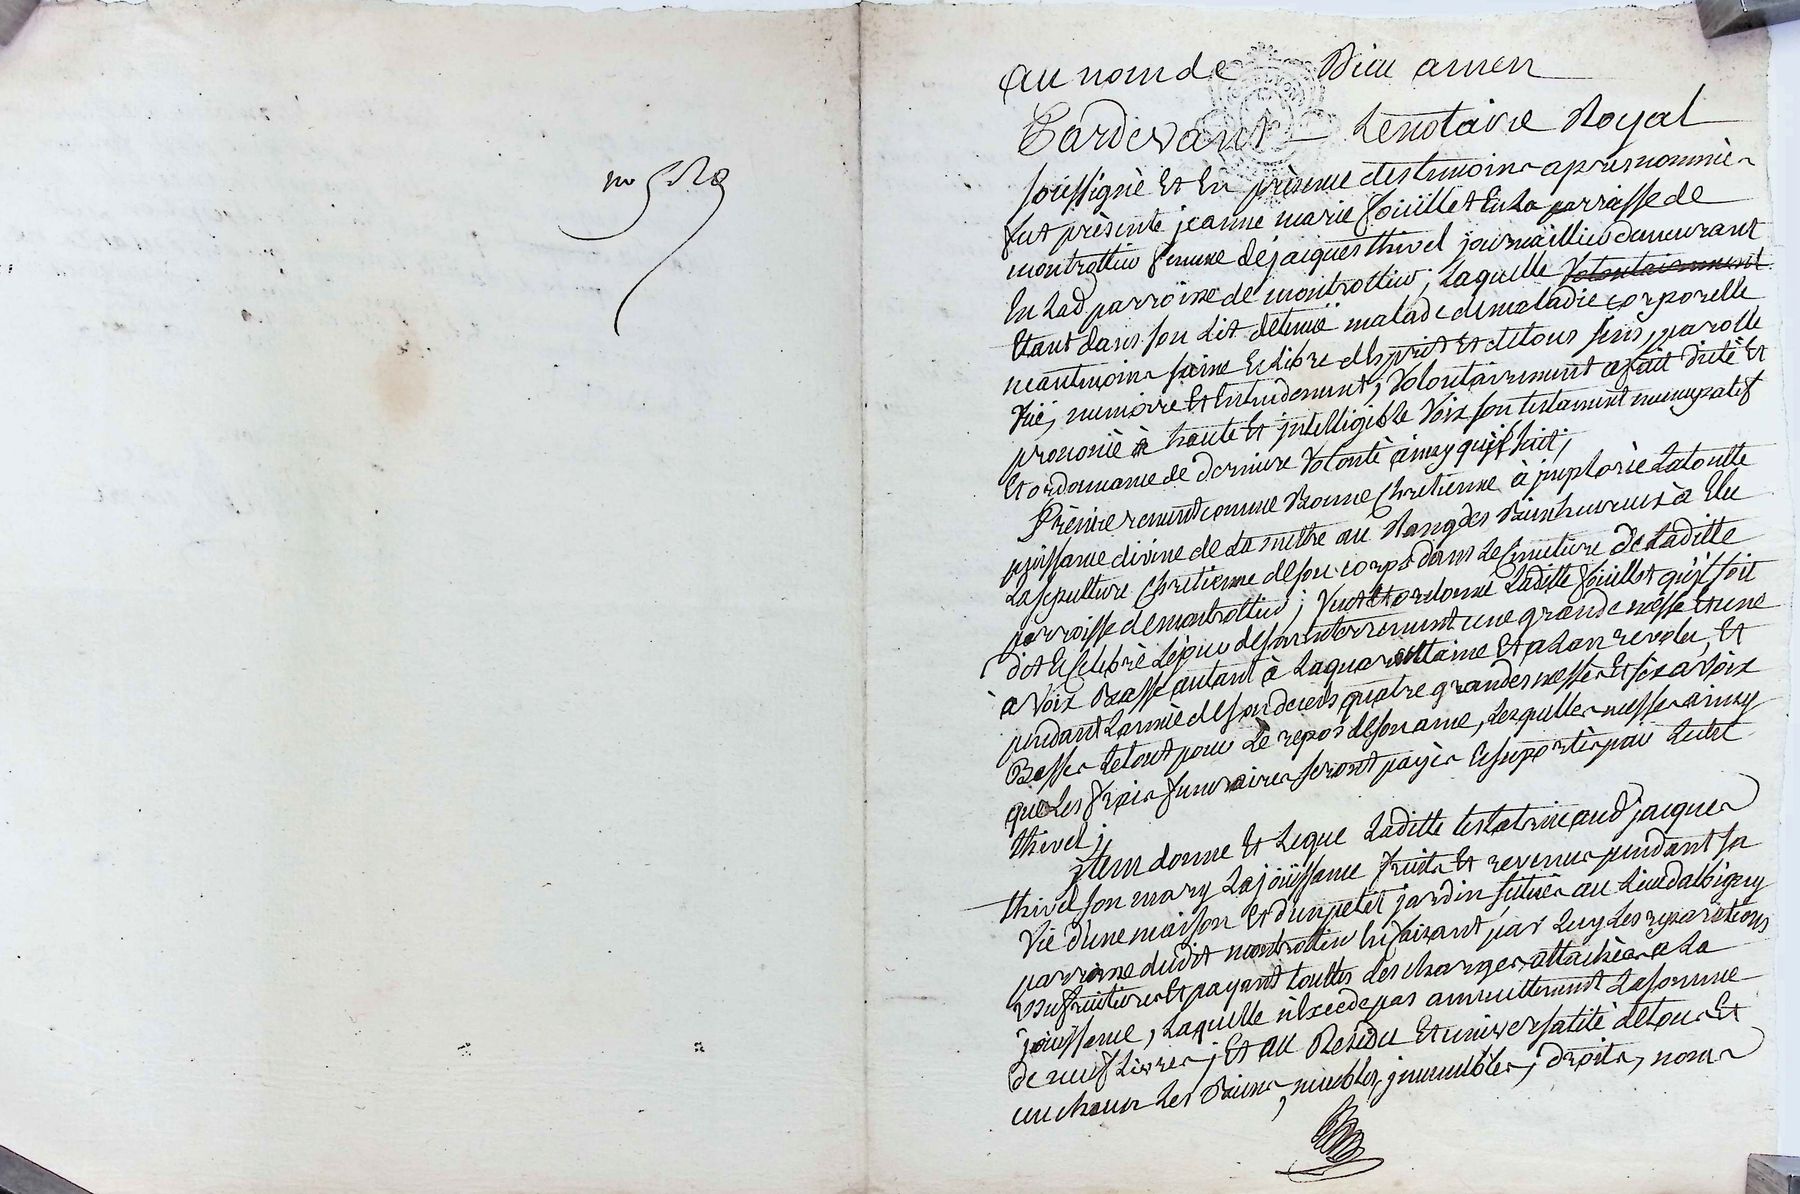 au nom de Dieu amen
Pardevant Le notaire Royal
soussigné Et En présence des temoins apres nommés
fut présente jeanne marie foüillet En La parroisse de
montrottier femme de jacques thivel journaillier demeurant
En Lad parroisse de montrottier, Laquelle volontairement
Etant dans son Lit detenüe malade de maladie corporelle
neantmoins saine Et Libre d'Esprit Et de tous sens, parolle
vüe, memoire Et Entendement, volontairement a fait dicté Et
prononcé à haute Et jntelligible voix son testament nuncupatif
Et ordonnance de derniere volonté ainsy qu'jl suit;
Prémierement comme Bonne Chretienne à jmplorée La toutte
puissance divine de La mettre au Rang des Bienheureux à Elu
La sepulture Chretienne de son corps dans Le Cimetiere de Laditte
parroisse de montrottier; veut Et ordonne Laditte foüillet qu'jl soit
dit Et celebré Le jour de son enterrement une grande messe Et une
à voix Basse autant à La quarantaine Et a Lan revolu, Et
pendant L'année de son deceds quatre grandes messes Et six a voix
Basses Le tout pour Le repos de son ame, Lesquelles messes ainsy
que Les frais funeraires seront payés Et suportés par Ledit
thivel;
jtem donne Et Legue Laditte testatrice aud jacques
thivel son mary La joüissance fruits Et revenus pendant sa
vie d'une maison Et d'un petit jardin situés au Lieu d'albigny
parroisse dudit montrottier En faisant par Luy Les reparations
usufruitieres Et payant touttes Les charges attachées a La
joüissance, Laquelle n'Excede pas annuellement La somme
de neuf Livres; Et au Residu Et universalité de tous Et
un chacun Les Biens, meubles, jmmeubles, droits, noms